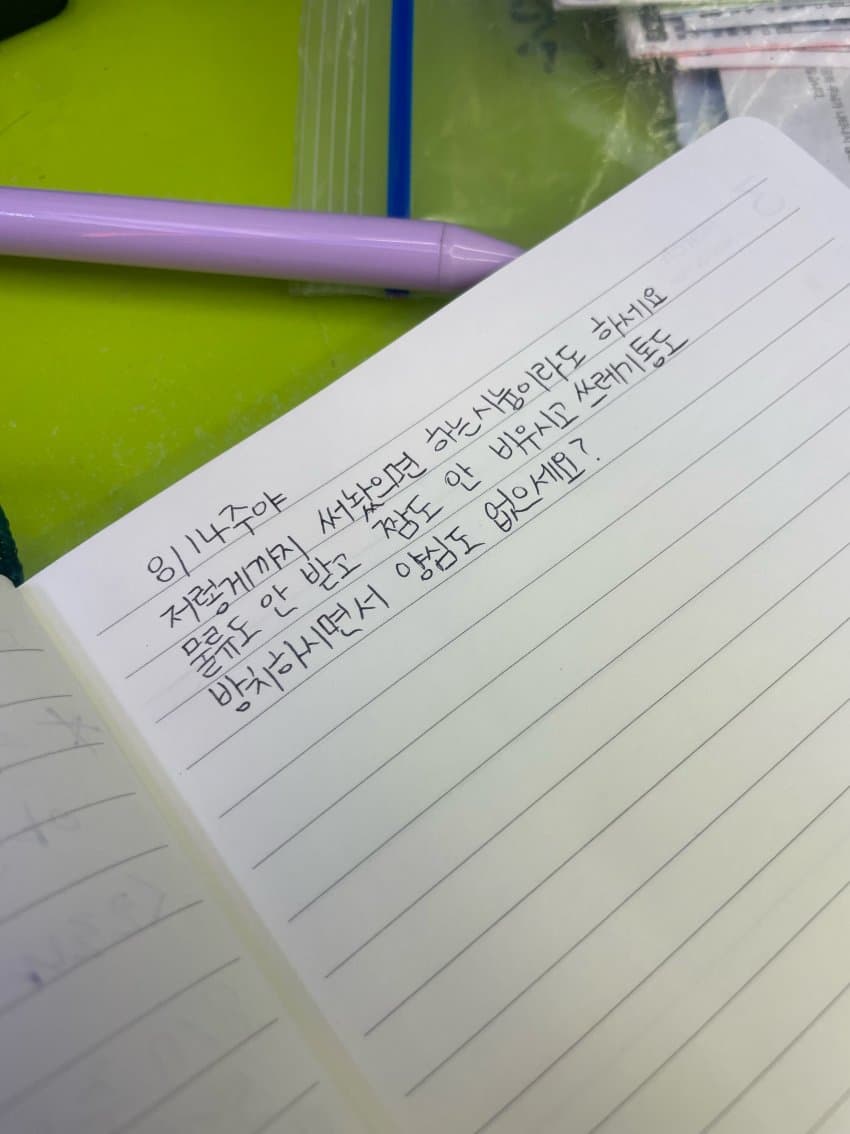 8/14 주야
저렇게까지 써놨으면 하는 시늉이라도 하세요
물류도 안 받고 짬도 안 비우시고 쓰레기통도
방치하시면서 양심도 없으세요?